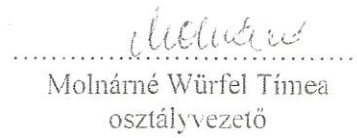 Molnárné Würfel Tímea
osztályvezető